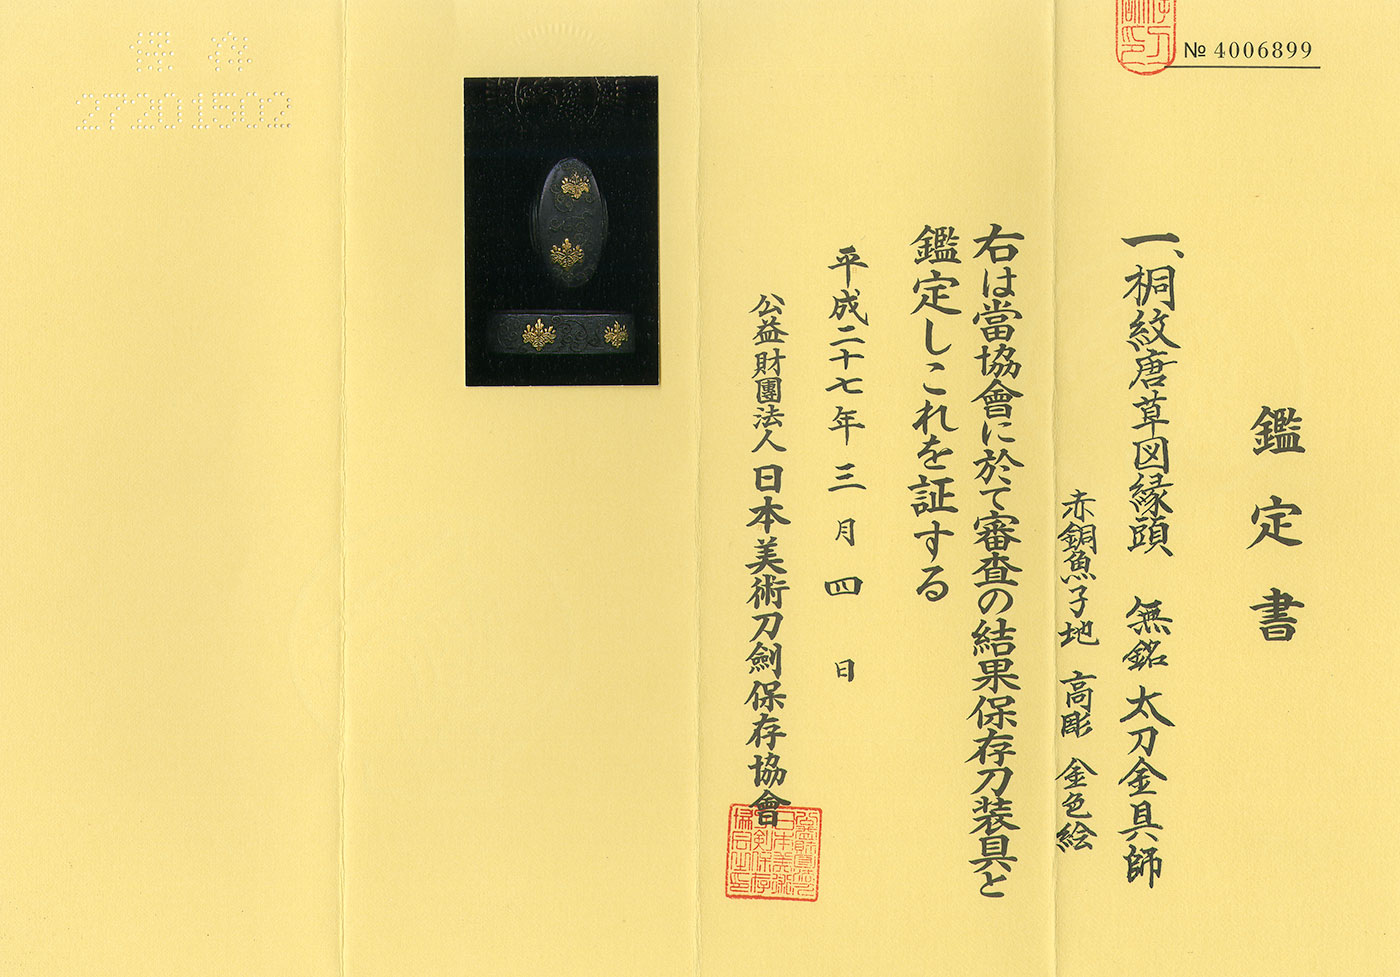 № 4006899
鑑定書
一、桐紋唐草図縁頭 無銘 太刀金具師
赤銅魚子地 高彫 金色絵
右は當協會に於て審査の結果保存刀装具と
鑑定しこれを証する
平成二十七年三月四日
公益財團法人 日本美術刀劍保存協會
保存
27201502